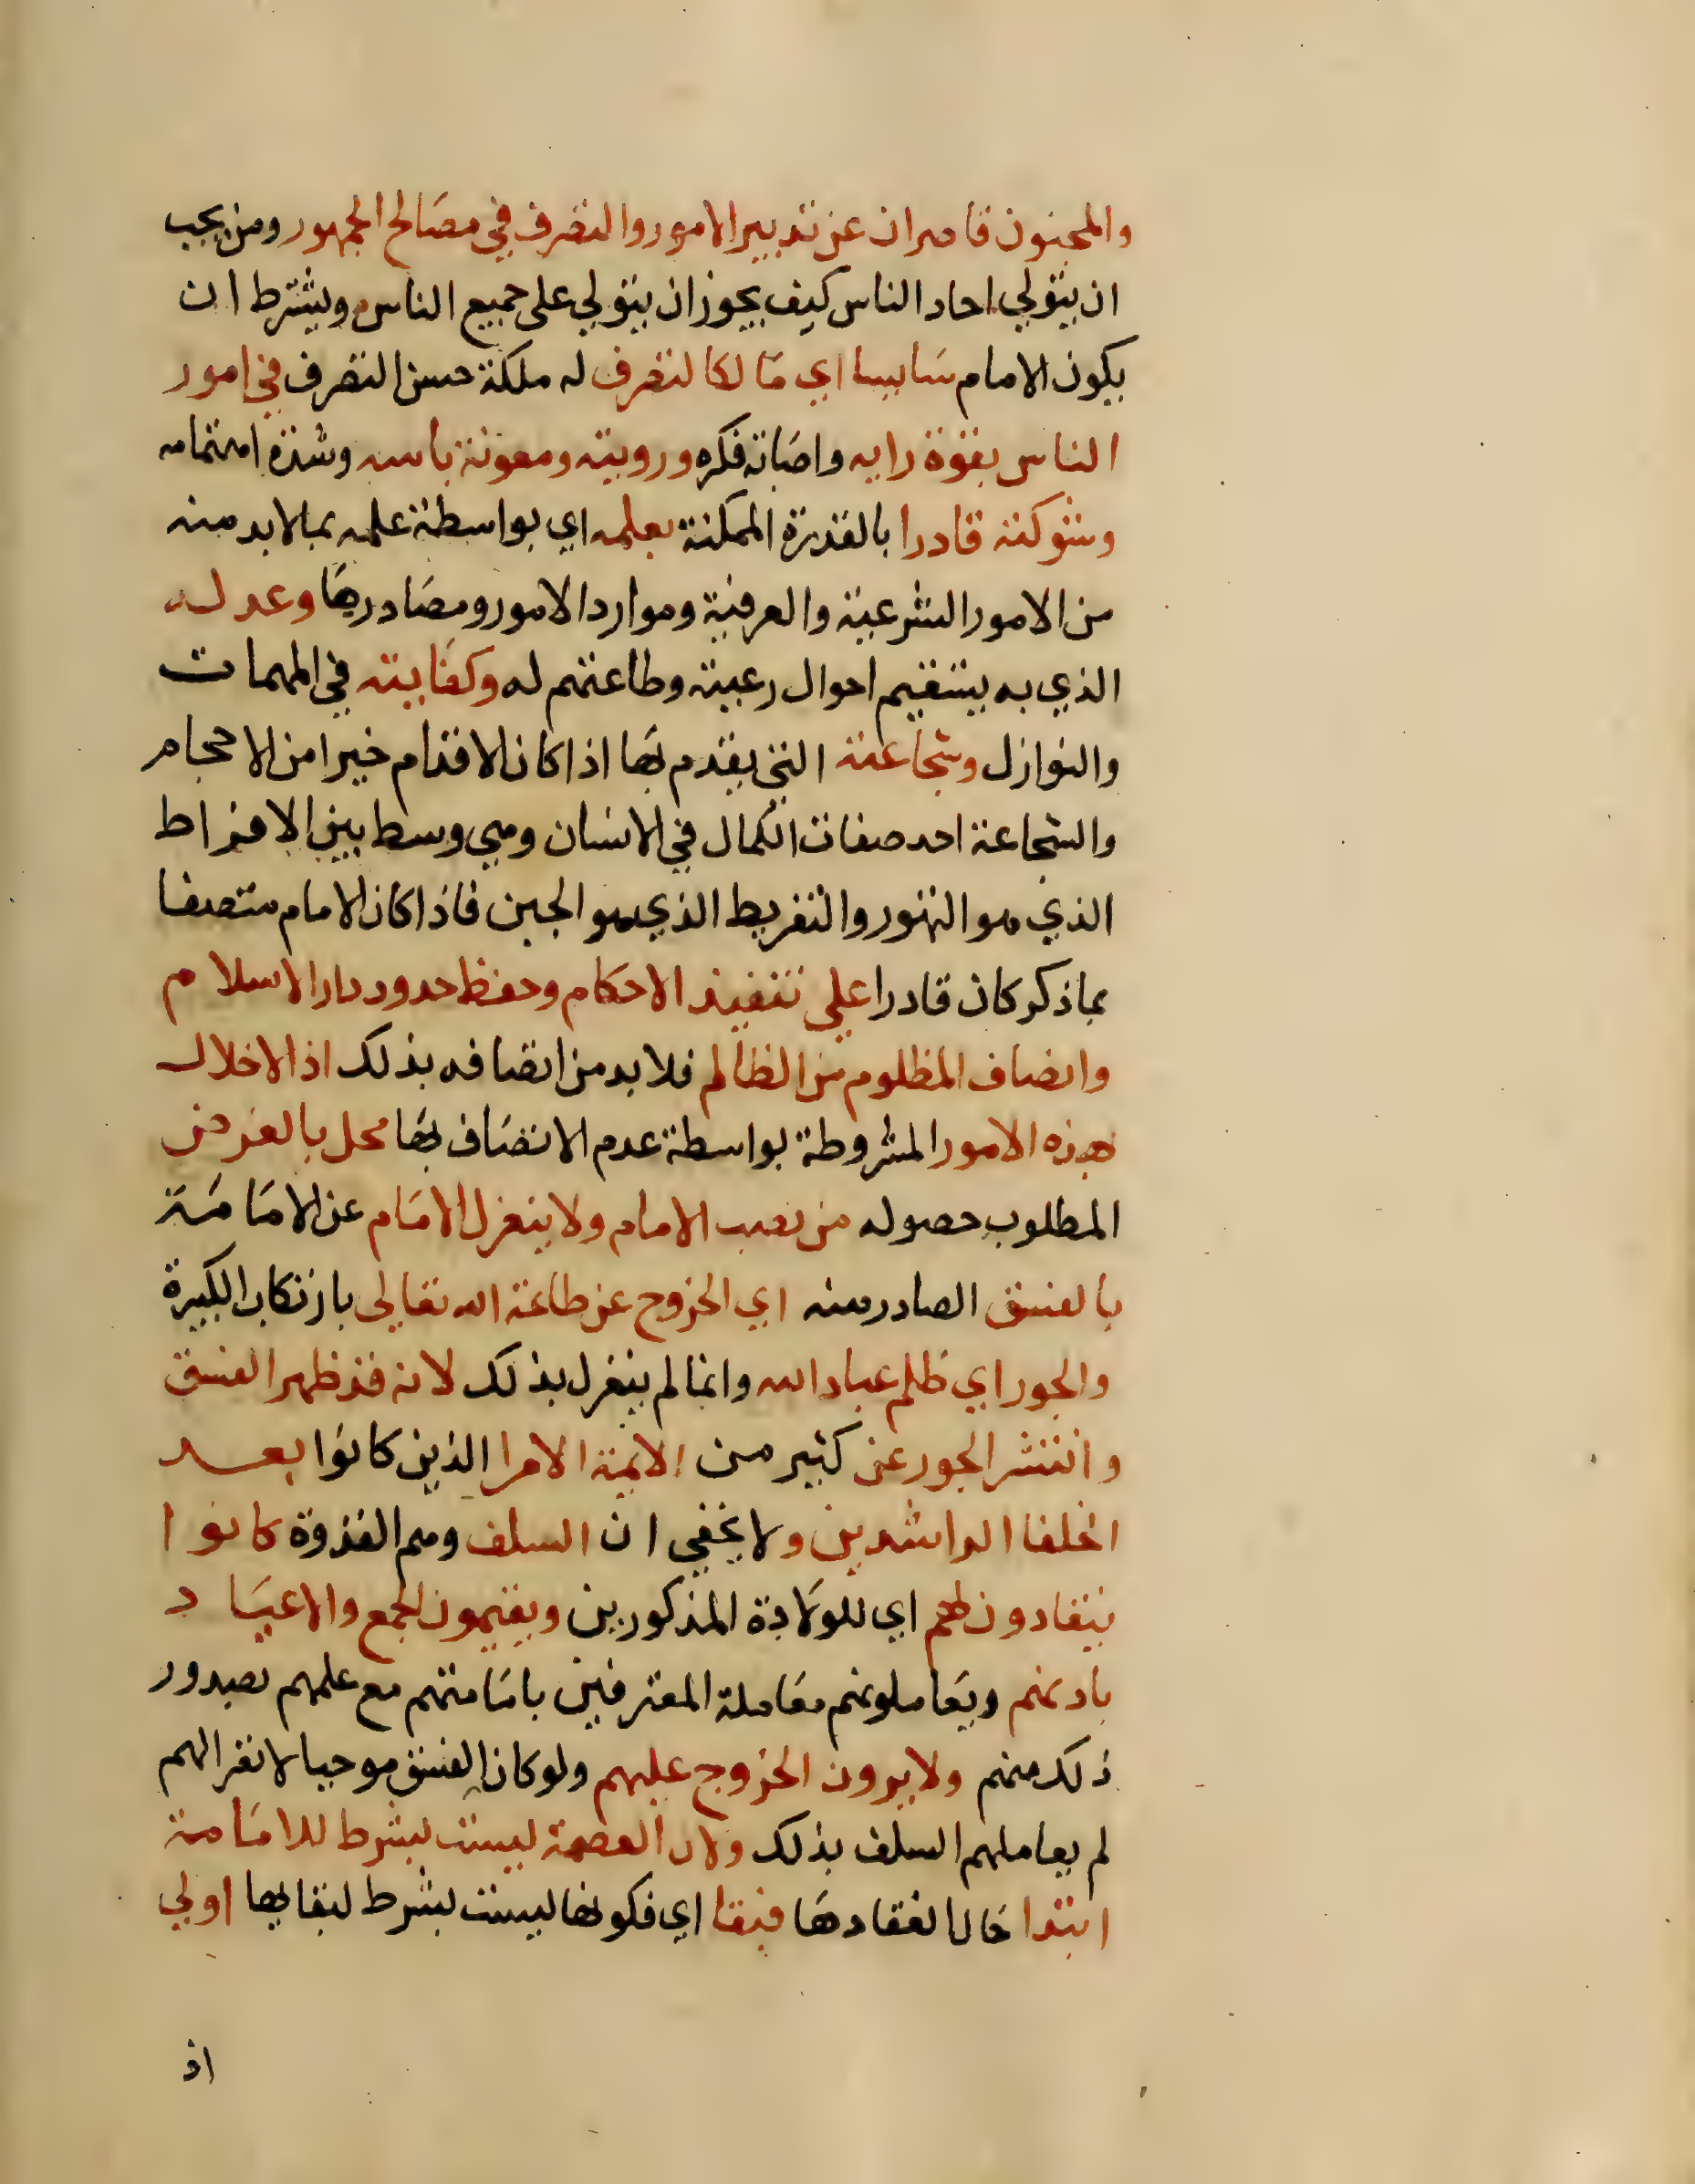 والمجنون قاصران عن تدبير الامور والتصرف في مصالح الجمهور ومن يجب
ان يتولي احاد الناس كيف يجوز ان يتولي على جميع الناس ويشترط ان
يكون الامام سايسا اي مالكا لتصرف له ملكة حسن التصرف في امور
الناس بقوة رايه واصابة فكره ورويته ومعونة باسه وشدة اهتمامه
وشوكته قادرا بالقدرة الممكنة بعلمه اي بواسطة علمه بما لا بد منه
من الامور الشرعية والعرفية وموارد الامور ومصادرها وعدله
الذي به يستقيم احوال رعيته وطاعتهم له وكفايته في المهمات
والنوازل وشجاعته التي يقدم بها اذا كان الاقدام خيرا من الاحجام
والشجاعة احد صفات الكمال في الانسان وهي وسط بين الافراط
الذي هو التهور والتفريط الذي هو الجبن فاذا كان الامام متصفا
بما ذكر كان قادرا علي تنفيذ الاحكام وحفظ حدود دار الاسلام
وانصاف المظلوم من الظالم فلا بد من اتصافه بذلك اذ الاخلال
بهذه الامور المشروطة بواسطة عدم الاتصاف بها مخل بالغرض
المطلوب حصوله من نصب الامام ولا ينعزل الامام عن الامامة
بالفسق الصادر منه اي الخروج عن طاعة الله تعالى بارتكاب الكبيرة
والجور اي ظلم عباد الله وانما لم ينعزل بذلك لانه قد ظهر الفسق
وانتشر الجور عن كثير من الايمة الامرا الذين كانوا بعد
الخلفا الراشدين ولا يخفي ان السلف وهم القدوة كانوا
ينقادون لهم اي للولاة المذكورين ويقيمون الجمع والاعياد
باذنهم ويعاملونهم معاملة المعترفين بامامتهم مع علمهم بصدور
ذلك منهم ولا يرون الخروج عليهم ولو كان الفسق موجبا لانعزالهم
لم يعاملهم السلف بذلك ولان العصمة ليست بشرط للامامة
ابتدا حال انعقادها فبقا اي فكونها ليست بشرط لبقايها اولي
اذ